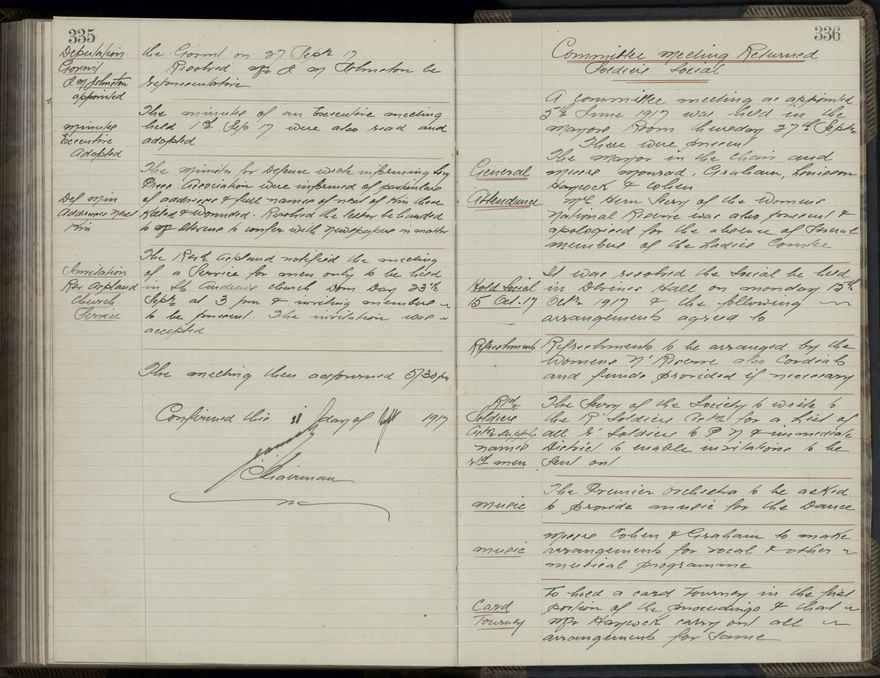 335
Deputation
Govmt
J M Johnston
appointed
the Govmt on 27 Sept 17
Resolved Mr J M Johnston be
representative
minutes
Executive
Adopted
The minutes of an Executive meeting
held 1st Sep 17 were also read and
adopted
Def Min
Addresses next
Kin
The Minister for Defence wrote informing
Press Association were informed of particulars
of addresses & full names of next of Kin those
Killed & wounded. Resolved the letter be handed
to Mr to confer with newspapers in matter
Invitation
Rev Aspland
Church
Service
The Revd Aspland notified the meeting
of a Service for men only to be held
in St Andrews church Dom Day 23rd
Sept at 3 pm & inviting members
to be present. The invitation was
accepted
The meeting then adjourned 5/30 pm
Confirmed this 11 day of 1917
Chairman
336
Committee Meeting Returned
Soldiers Social
A Committee meeting as appointed
5th June 1917 was held in the
Mayors Room thursday 27th Septr
There were present
General
Attendance
The Mayor in the Chair and
Messrs Monrad, Graham,
Haycock & Cohen
The Hon Secy of the Womens
National Reserve was also present &
apologised for the absence of Several
members of the Ladies Comtee
Hold Social
15 Oct. 17
It was resolved the Social be held
in Hall on monday 15th
Octr 1917 & the following
arrangements agreed to
Refreshments
Refreshments to be arranged by the
Womens N' Reserve also Cordials
and funds provided if necessary
Rtd
Soldiers
Assn supply
names
rtd men
The Secy of the Society to write to
the R' Soldiers Assn for a list of
all R' Soldiers to P N & immediate
District to enable invitations to be
Sent out
music
The Premier orchestra to be asked
to provide music for the Dance
music
Messrs Cohen & Graham to make
arrangements for vocal & other
musical programme
Card
Tourney
To hold a card Tourney in the first
portion of the proceedings & that
Mr Haycock carry out all
arrangements for Same